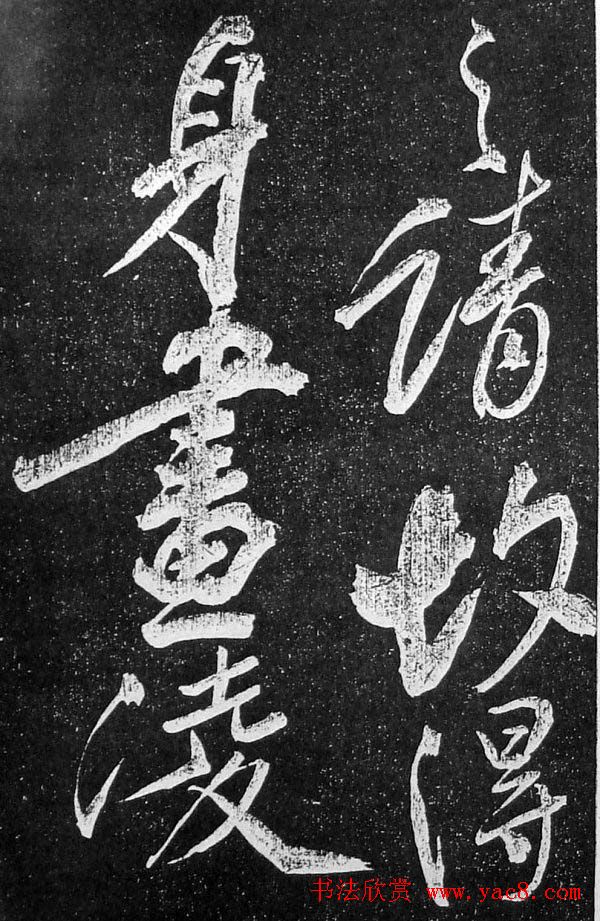 之请故得
身画凌
书法欣赏 www.yac8.com